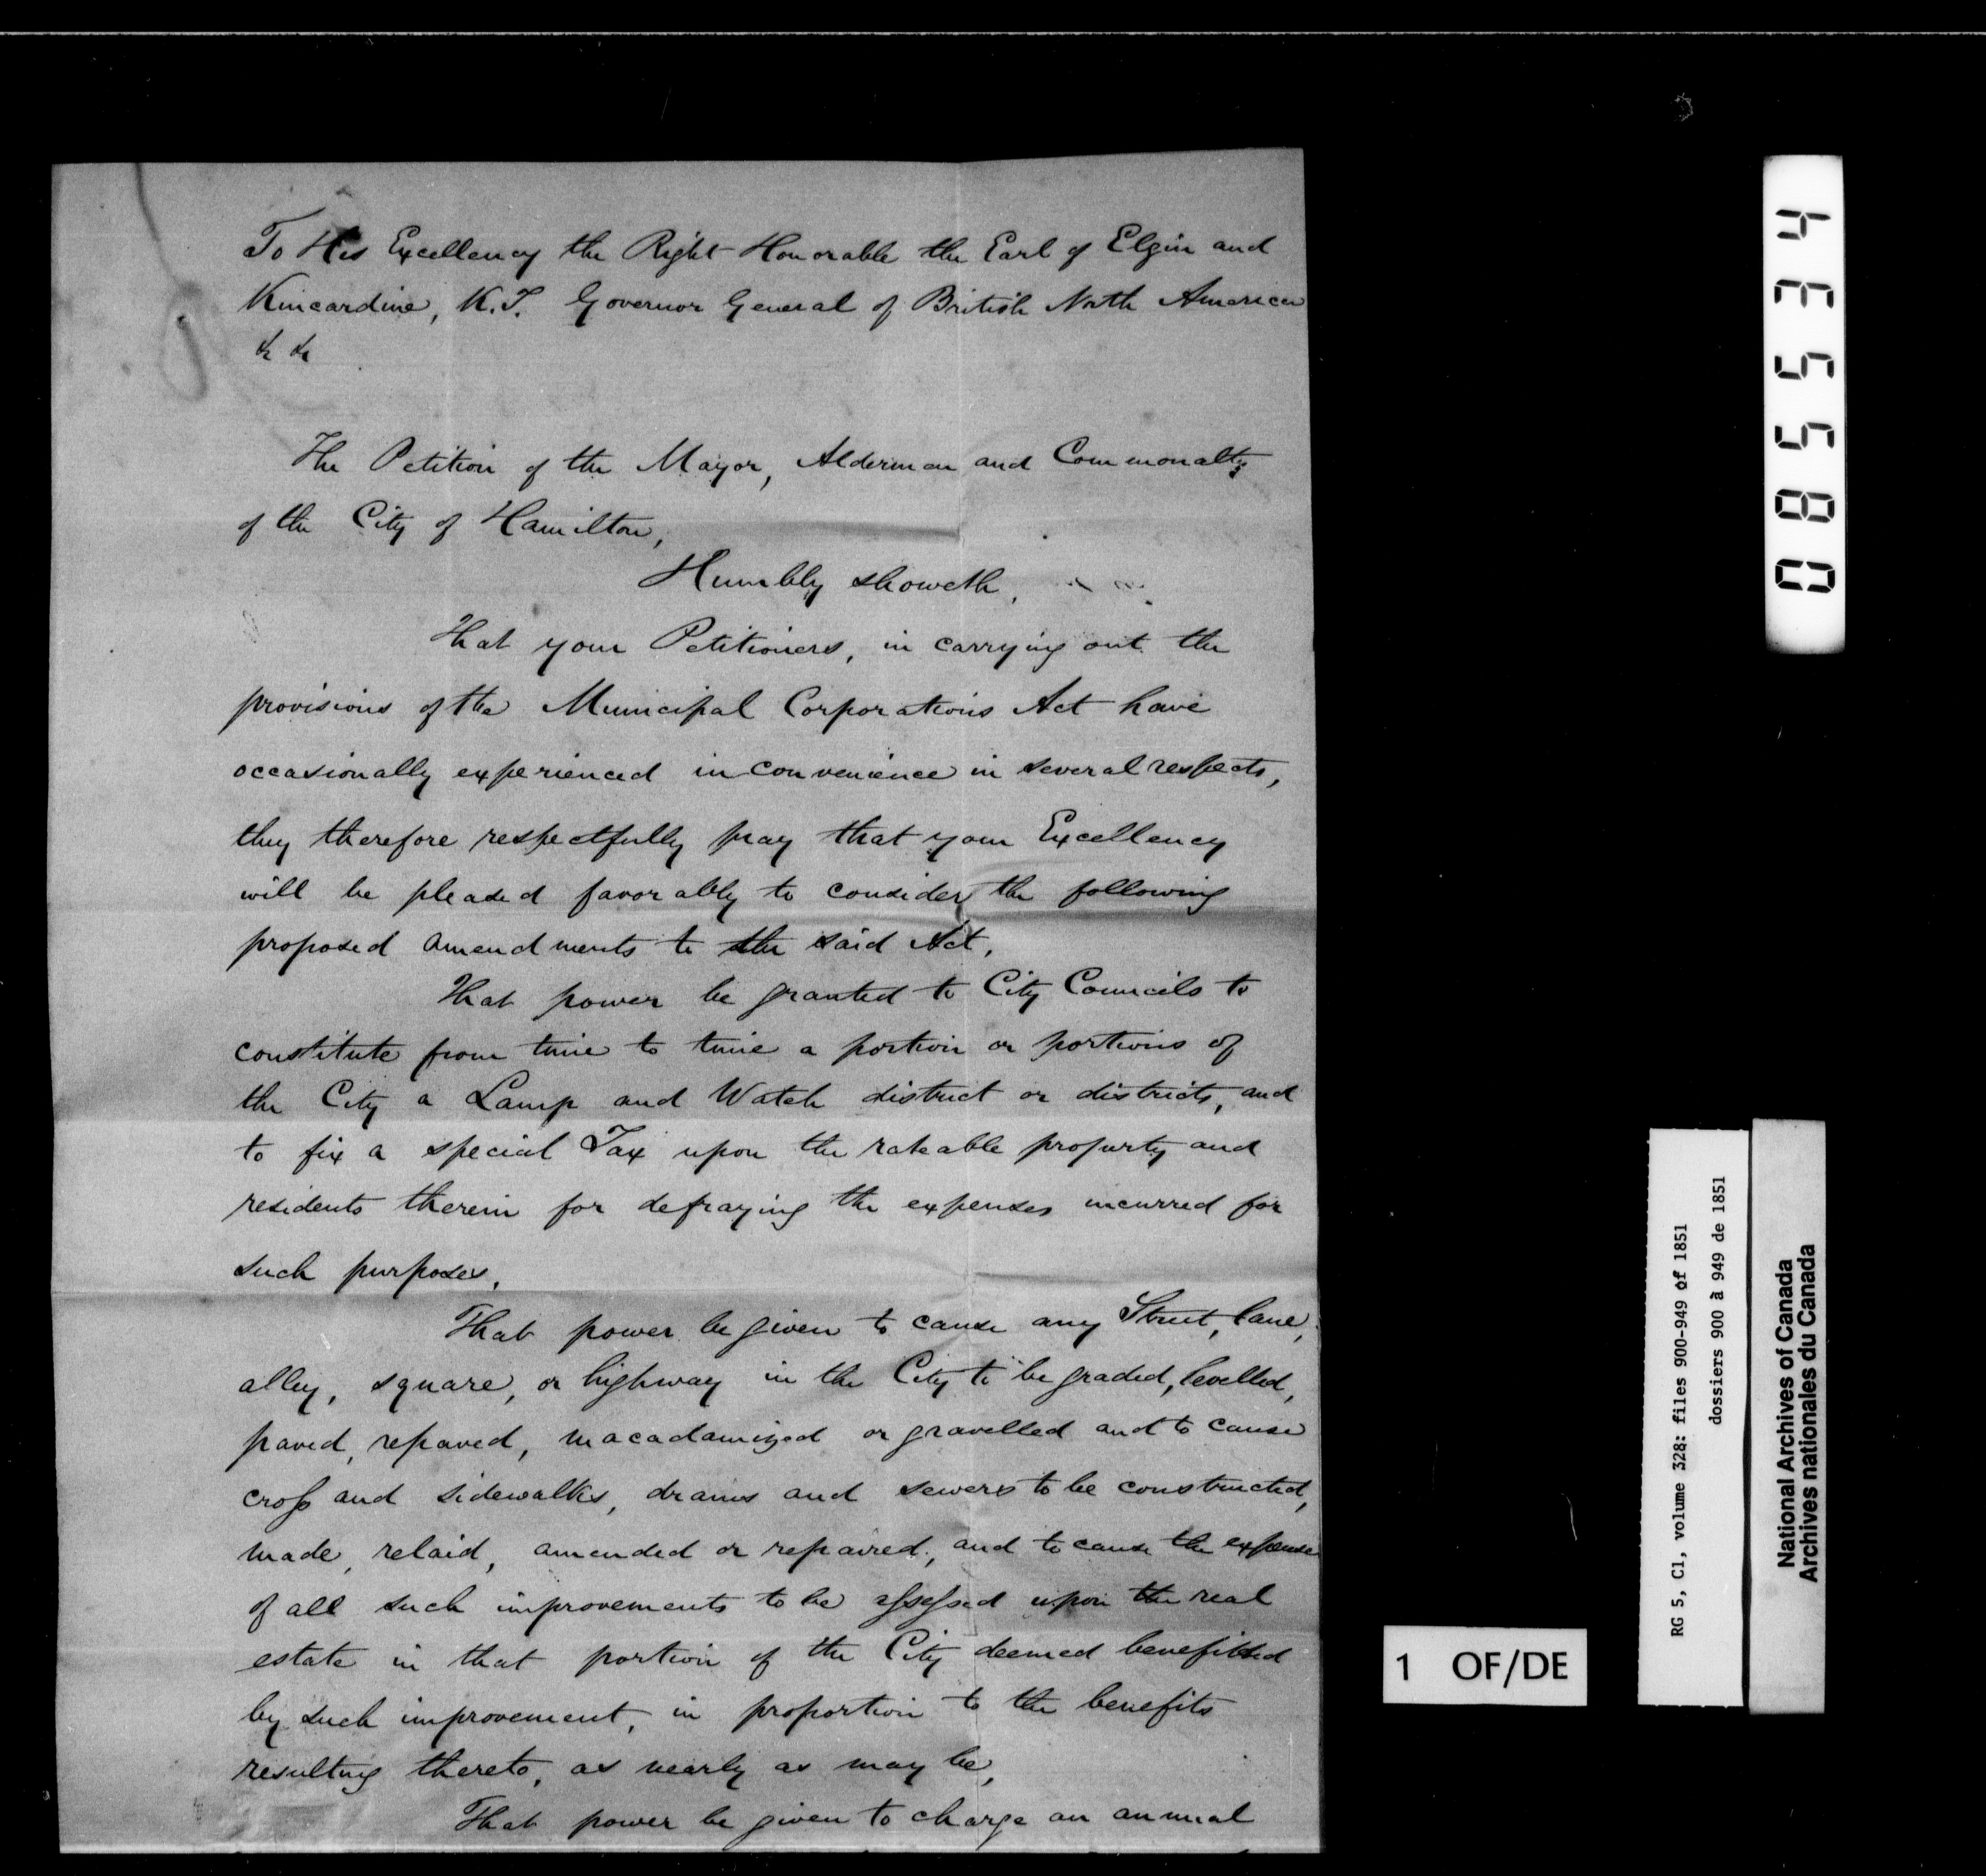 To His Excellency the Right Honorable the Earl of Elgin and
Kincardine, K.T. Governor General of British North America
&c &c
The Petition of the Mayor, Alderman and Commonalty
of the City of Hamilton,
Humbly showeth,
That your Petitioners, in carrying out the
provisions of the Municipal Corporations Act have
occasionally experienced inconvenience in several respects,
they therefore respectfully pray that your Excellency
will be pleased favorably to consider the following
proposed amendments to the said Act,
That power be granted to City Councils to
constitute from time to time a portion or portions of
the City a Lamp and Watch district or districts, and
to fix a special Tax upon the rateable property and
residents therein for defraying the expenses incurred for
such purposes,
That power be given to cause any Street, lane,
alley, square, or highway in the City to be graded, levelled,
paved, repaved, macadamized or gravelled and to cause
cross and sidewalks, drains and sewers to be constructed,
made, relaid, amended or repaired, and to cause the expense
of all such improvements to be assessed upon the real
estate in that portion of the City deemed benefitted
by such improvement, in proportion to the benefits
resulting thereto, as nearly as may be,
That power be given to charge an annual
085534
1 OF/DE
RG 5, C1, volume 328: files 900-949 of 1851
dossiers 900 à 949 de 1851
National Archives of Canada
Archives nationales du Canada